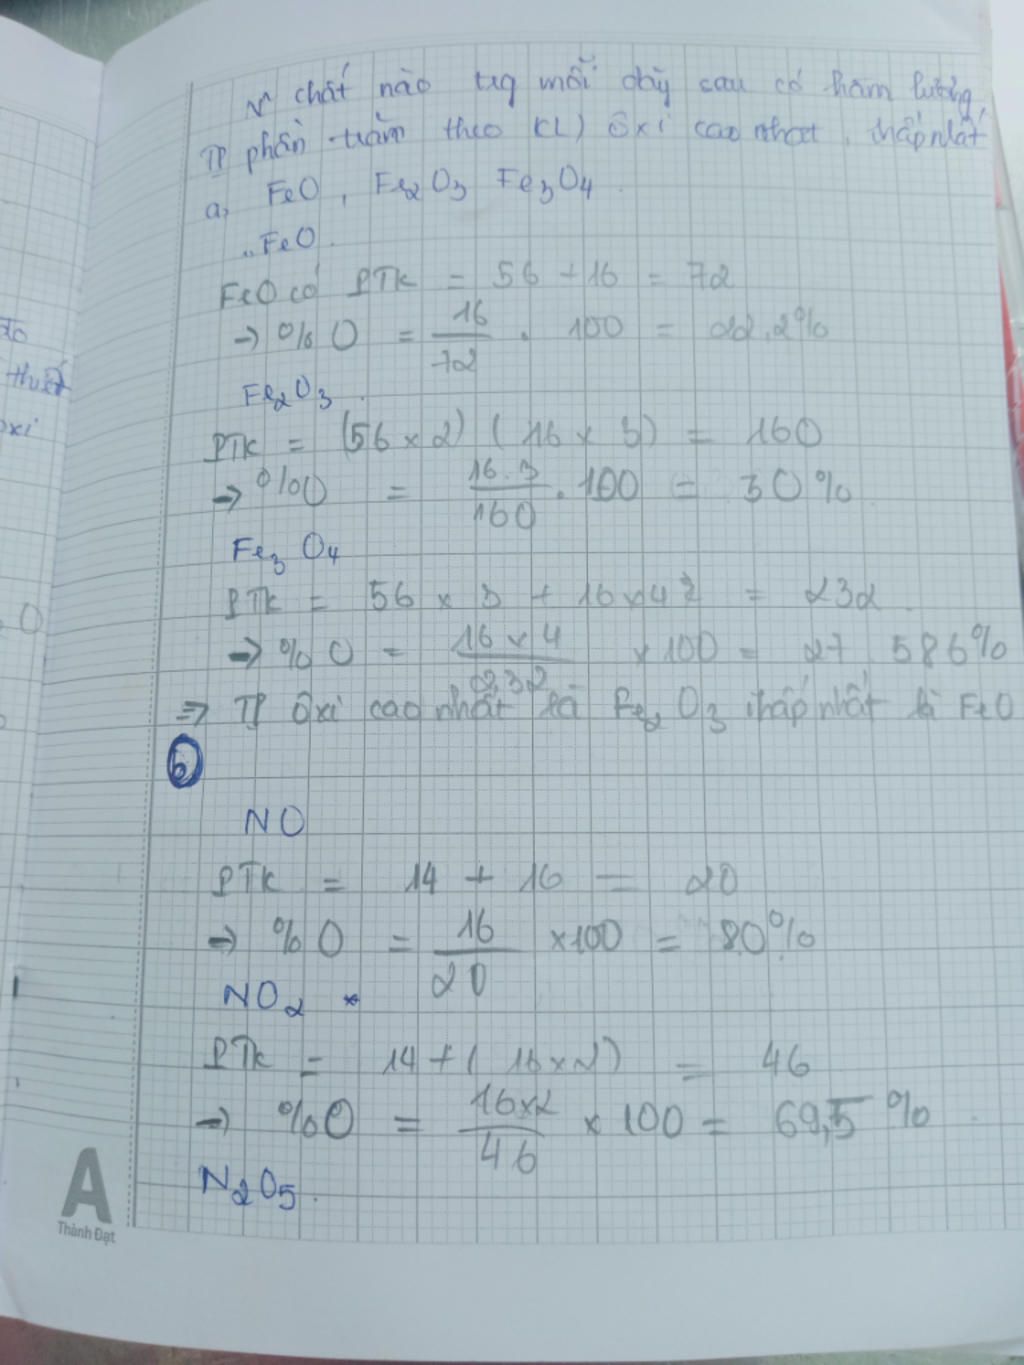 chất nào trg mỗi dãy sau có hàm lượng
phần trăm theo KL) ôxi cao nhất, thấp nhất
a, FeO, Fe2O3 Fe3O4
FeO
FeO có PTK = 56 + 16 = 72
→ % O = 16/72 . 100 = 22,2%
Fe2O3
PTK = (56 x 2) (16 x 3) = 160
→ %O = 16.3/160 . 100 = 30%
Fe3O4
PTK = 56 x 3 + 16 x 4 = 232
→ % O = 16 x 4/232 x 100 = 27 586%
⇒ ôxi cao nhất là Fe2O3 thấp nhất là FeO
b
NO
PTK = 14 + 16 = 20
→ % O = 16/20 x100 = 80%
NO2
PTK = 14 + ( 16 x 2) = 46
→ %O = 16x2/46 x 100 = 69,5%
N2O5.
A
Thành Đạt
thiết
oxi
O